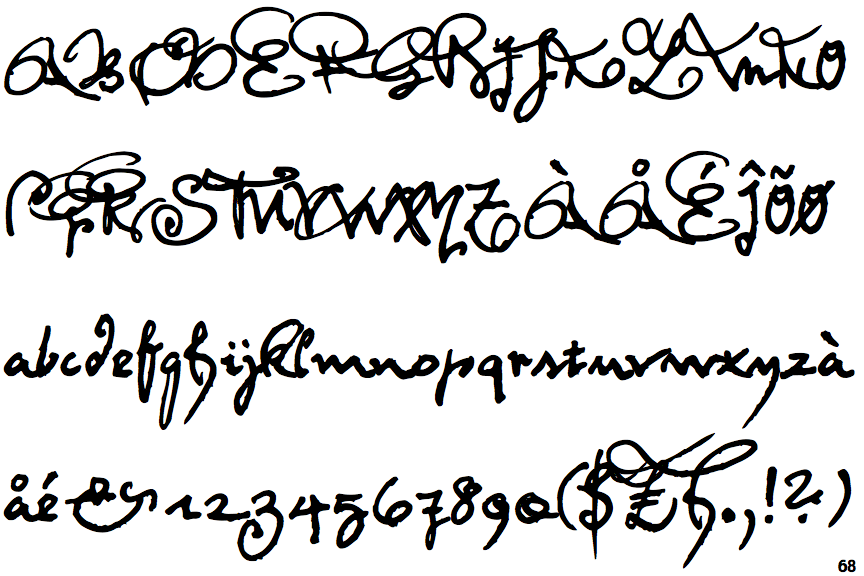 ABCDEFGHIJKLMNO
PQRSTUVWXYZÀÅÉĴÕØ
abcdefghijklmnopqrstuvwxyzà
åé&1234567890($£.,!?)
68